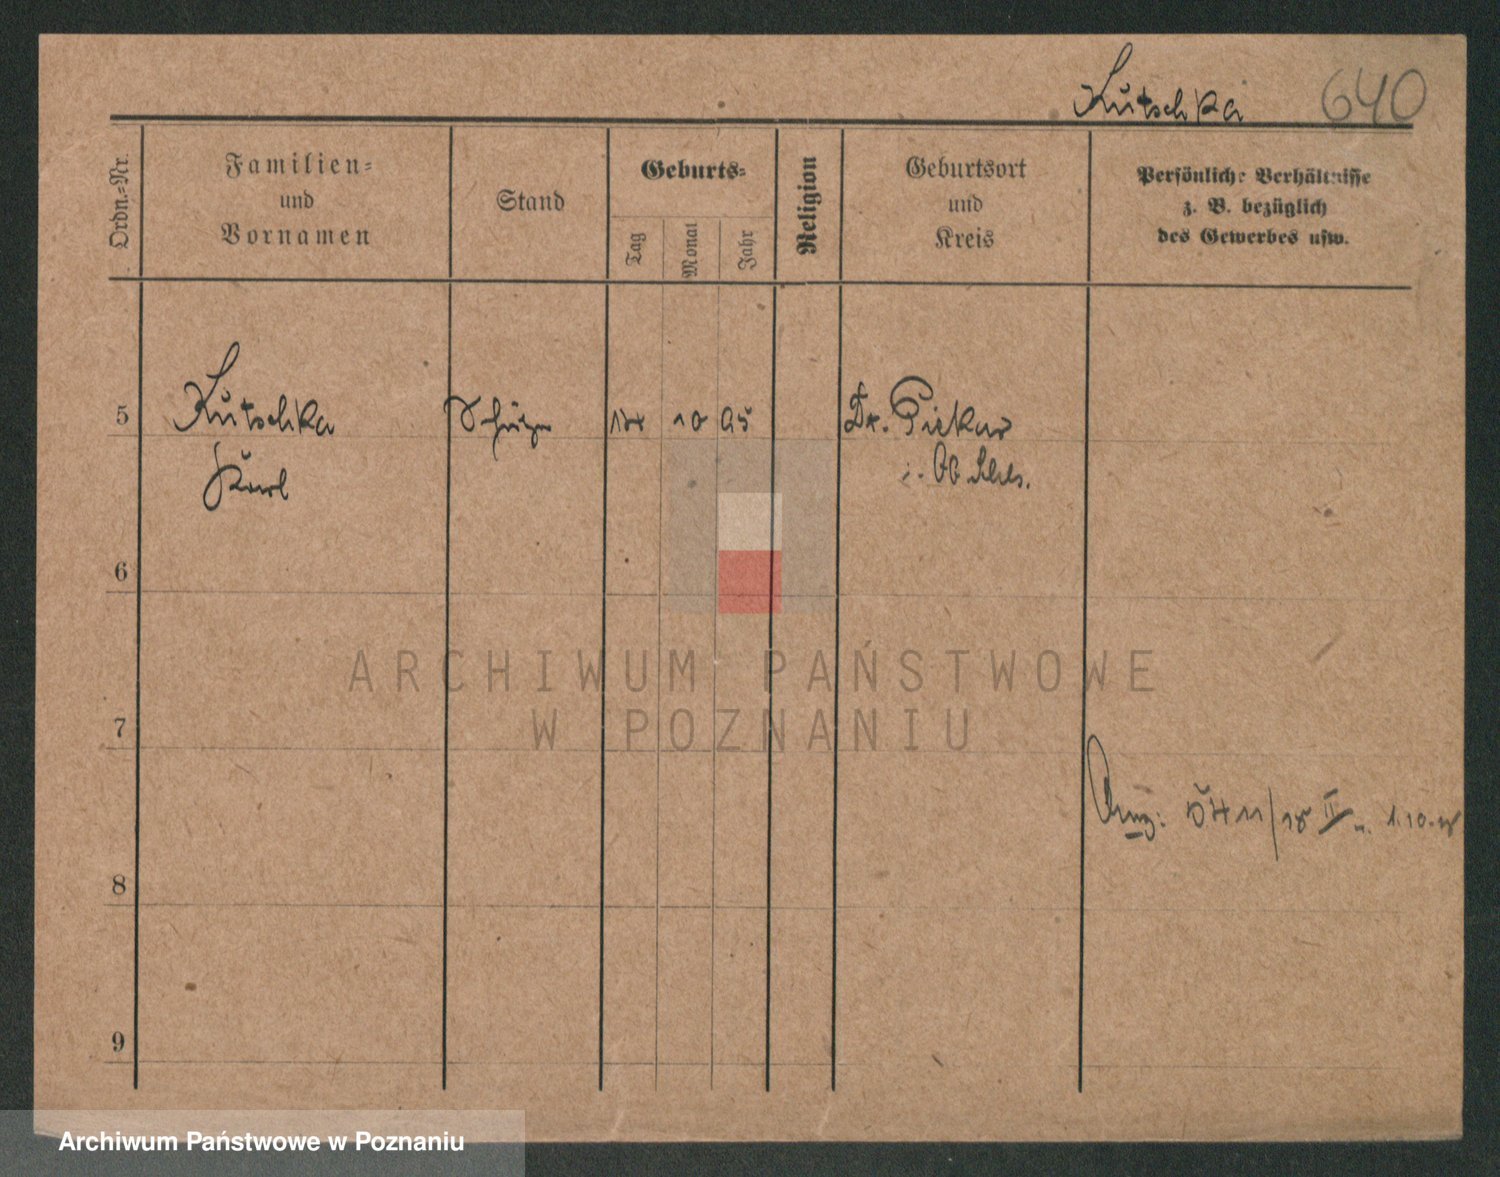 Kutschka 640
Ordn.=Nr.
Familien=
und
Vornamen
Stand
Geburts=
Tag
Monat
Jahr
Religion
Geburtsort
und
Kreis
Persönliche Verhältnisse
z. B. bezüglich
des Gewerbes usw.
5 Kutschka 10 95 Dt. Piekar
Karl
6
ARCHIWUM PAŃSTWOWE
W POZNANIU
7
8
9
Archiwum Państwowe w Poznaniu